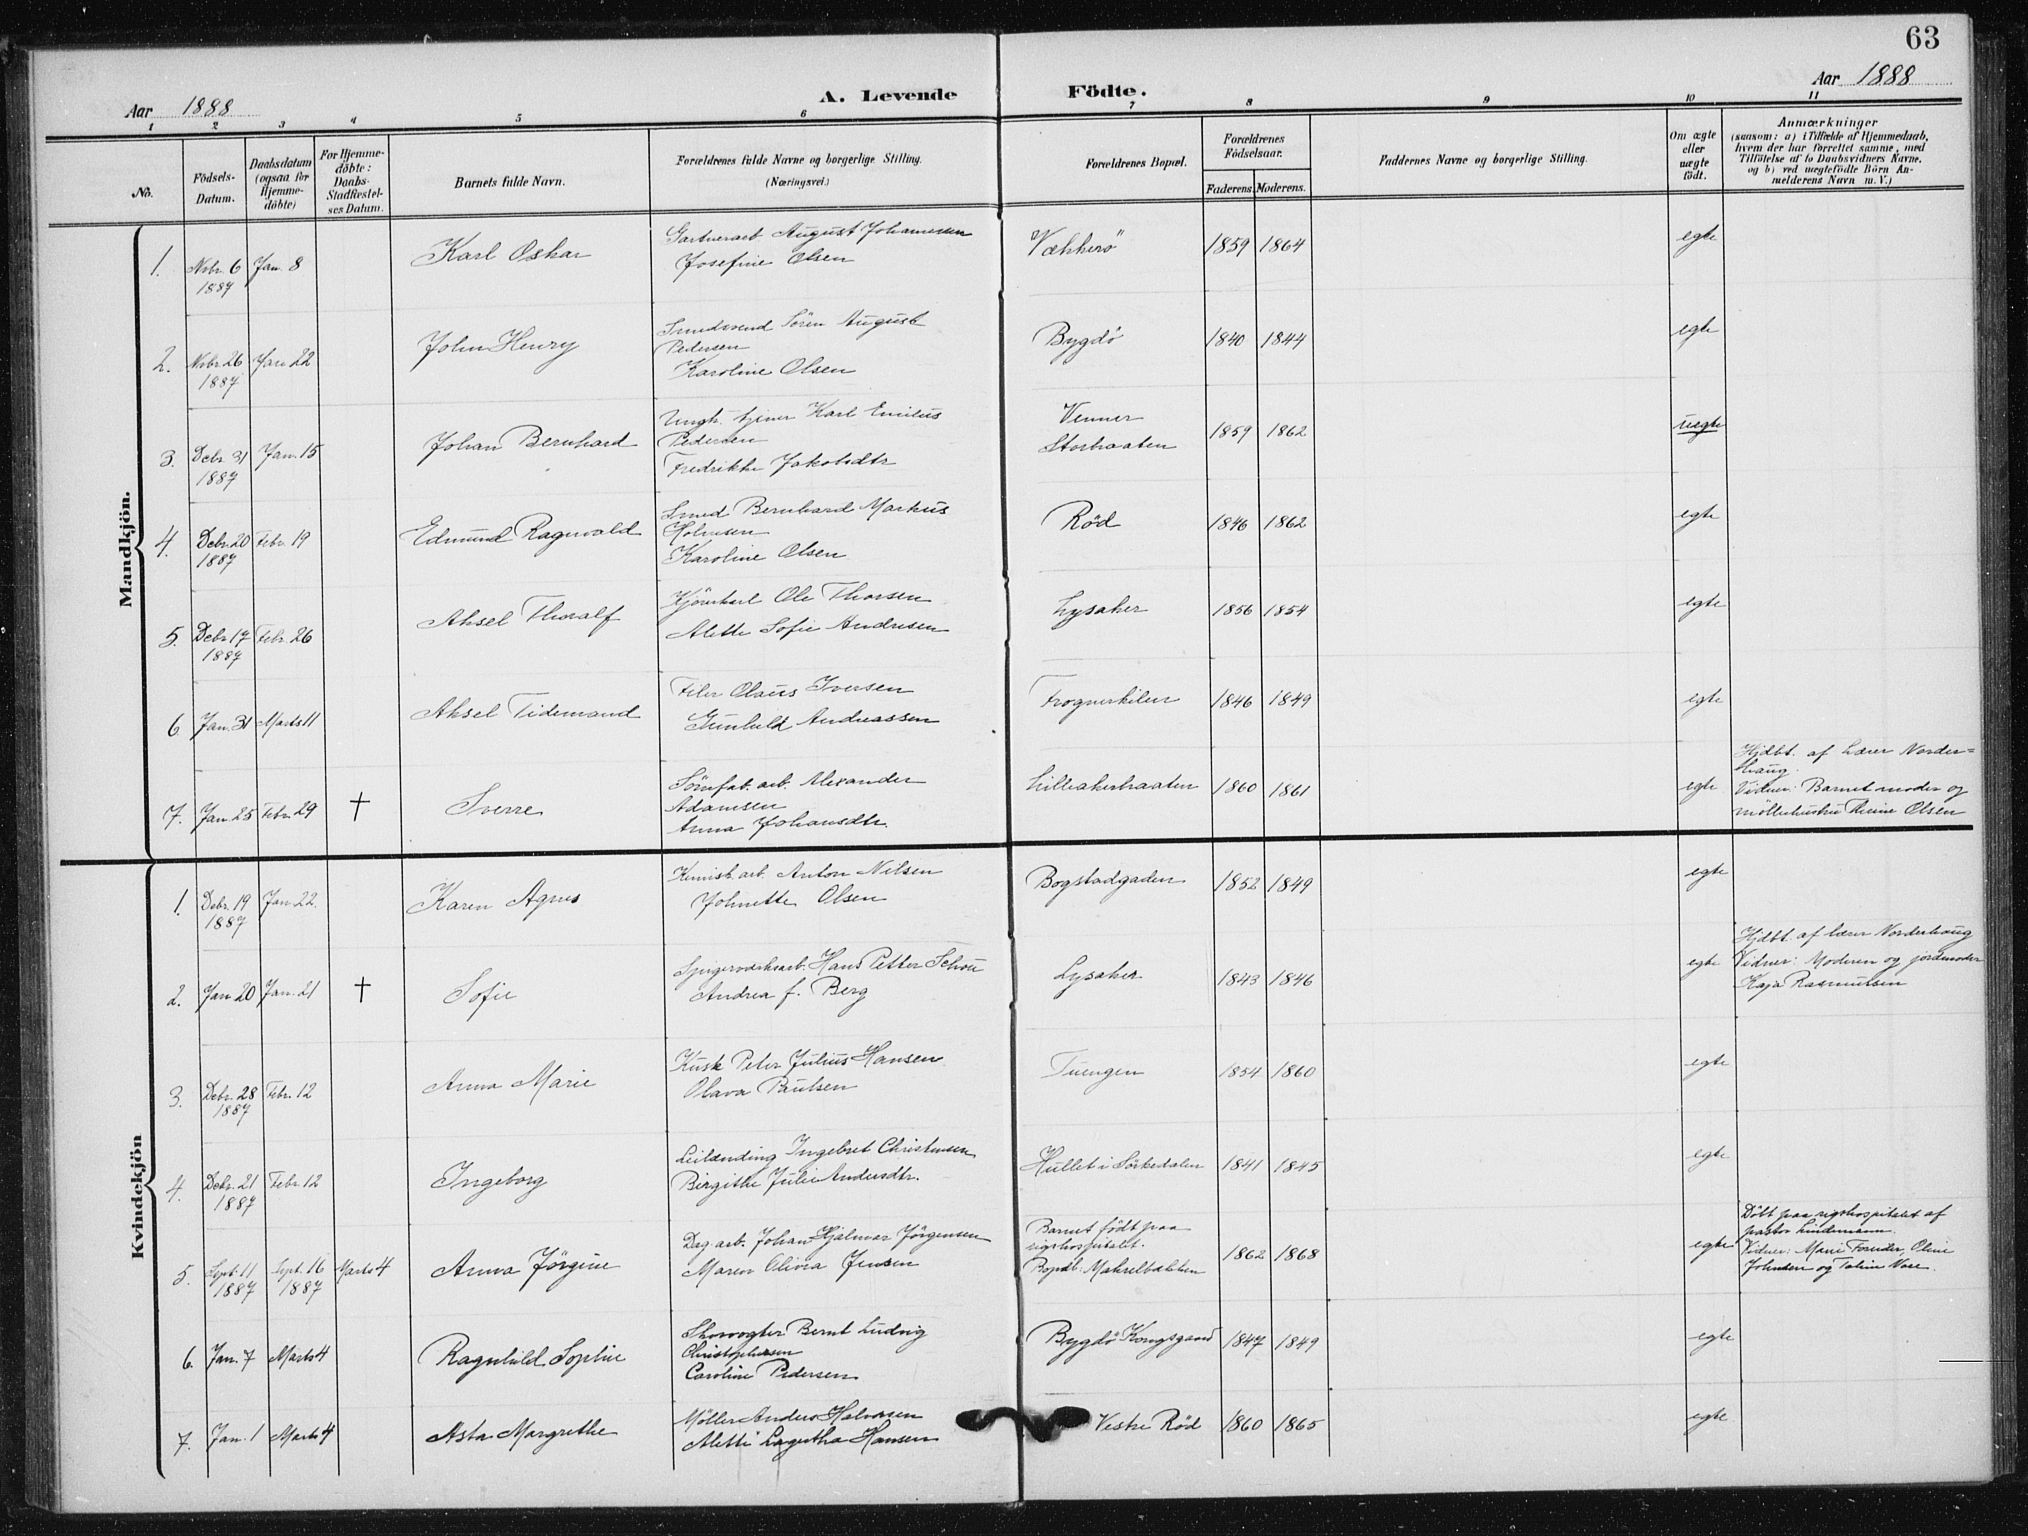 63
Aar 1888
A. Levende Födte.
Aar 1888
1 2 3 4 5 6 7 8 9 10 11
No.
Födsels-Datum.
Daabsdatum (ogsaa for Hjemme-döbte)
For Hjemme-döbte: Daabs-Stadfæstel-ses Datum.
Barnets fulde Navn.
Forældrenes fulde Navne og borgerlige Stilling.
(Næringsvei.)
Forældrenes Bopæl.
Forældrenes Födselsaar.
Faderens. Moderens.
Faddernes Navne og borgerlige Stilling.
Om ægte eller uægte födt.
Anmærkninger
(saasom: a) i Tilfælde af Hjemmedaab,
hvem der har forrettet samme, med
Tilföielse af to Daabsvidners Navne.
og b) ved uægtefödte Börn An-
melderens Navn m. V.)
Mandkjön.
1. Nvbr. 6 1887 Jan. 8 Karl Oskar Gartnerarb August Johannesen Vækkerö 1859 1864 egte
Josefine Olsen
2. Nvbr. 26 1887 Jan 22 John Henry Smedsvend Sören August Bygdö 1840 1844 egte
Pedersen
Karoline Olsen
3. Debr. 31 1887 Jan. 15 Johan Bernhard Ungk. tjener Karl Emilius Venner 1859 1862 uegte
Pedersen Storbraaten
Fredrikke Jakobsdtr
4. Debr. 20 1887 Febr. 19 Edmund Ragnvald Smed Bernhard Markus Röd 1846 1862 egte
Holmsen
Karoline Olsen
5. Debr 17 1887 Febr. 26 Aksel Thoralf Kjörekarl Ole Thorsen Lysaker 1856 1854 egte
Alette Sofie Andresen
6 Jan. 31 Marts 11 Aksel Tidemand Filer Olaus Iversen Frognerkilen 1846 1849 egte
Gunhild Andreassen
7. Jan. 25 Febr. 29 † Sverre Sömfab. arb. Alexander Lilleakerbraaten 1860 1861 egte
Adamsen
Anna Johansdtr.
Hjdbt. af Lærer Norder=
haug.
Vidner: Barnet moder og
möllerhustru Thrine Olsen
Kvindekjön
1. Debr. 19 1887 Jan 22. Karen Agnes Kemisk arb. Anton Nilsen Bogstadgaden 1852 1849 egte
Johnette Olsen
2. Jan 20 Jan. 21 † Sofie Spigerværksarb. Hans Petter Schou Lysaker 1843 1846 egte
Andrea f. Berg
Hjdbt. af lærer Norderhaug
Vidner: Moderen og jordmoder
Kaja Rasmussen
3. Debr. 28 1887 Febr. 12 Anna Marie Kusk Peter Julius Hansen Tuengen 1854 1860 egte
Olava Paulsen
4. Debr. 21 1887 Febr. 12 Ingeborg Leilænding Ingebret Christensen Hullet i Sörkedalen 1841 1845 egte
Birgithe Julie Andersdtr.
5. Sept. 11 1887 Sept. 16 1887 Marts 4 Anna Jörgine Dag. arb. Johan Hjalmar Jörgensen Barnet födt paa 1862 1868 egte
Maren Olivia Jensen rigshospitalet.
Bopæl: Makrelbækken
Döbt paa rigshospitalet af
pastor Lindemann.
Vidner: Marie Oline
Johnsen og
6. Jan. 7 Marts 4 Ragnhild Sophie Skovvogter Bernt Ludvig Bygdö Kongsgaard 1847 1849 egte
Christophersen
Caroline Pedersen
7. Jan. 1 Marts 4 Asta Margrethe Möller Anders Halvorsen Vestre Röd 1860 1865 egte
Alette Lagertha Hansen